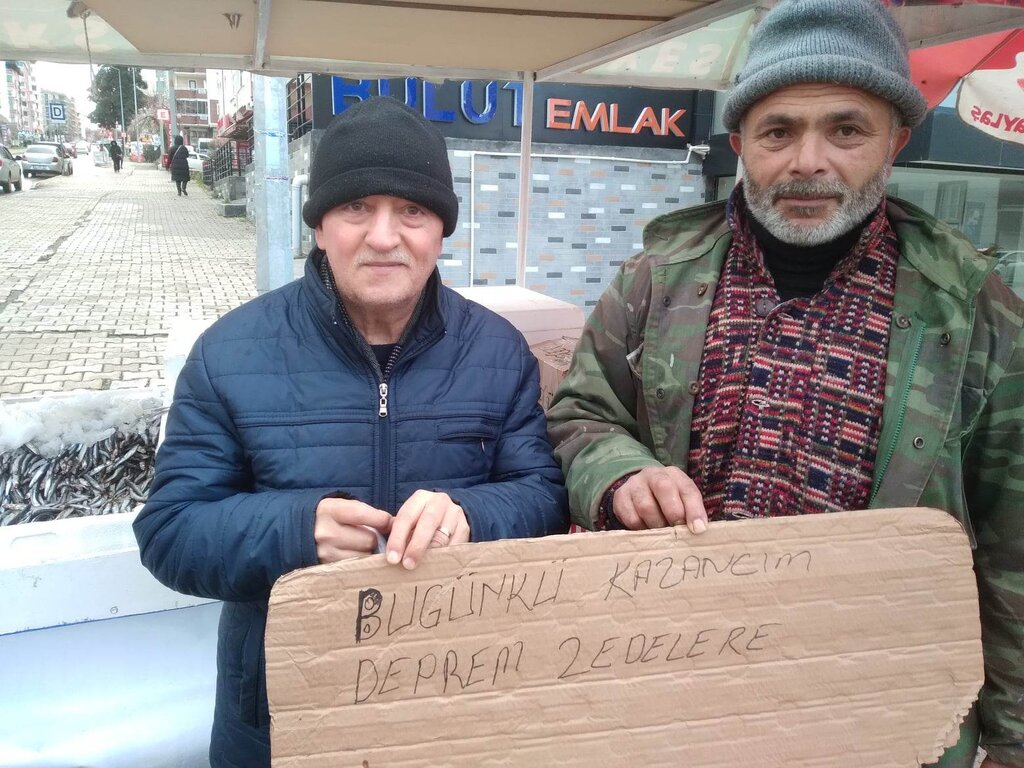 BULUT EMLAK
BUGÜNKÜ KAZANCIM
DEPREM ZEDELERE
D